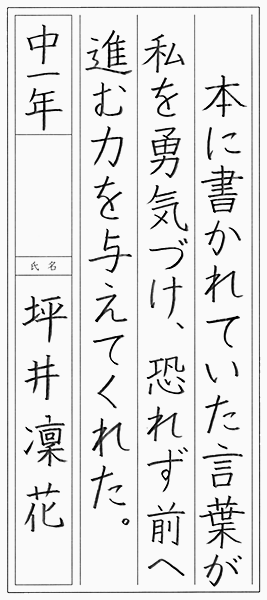 本に書かれていた言葉が
私を勇気づけ、恐れず前へ
進む力を与えてくれた。
中一年
氏名
坪井凜花